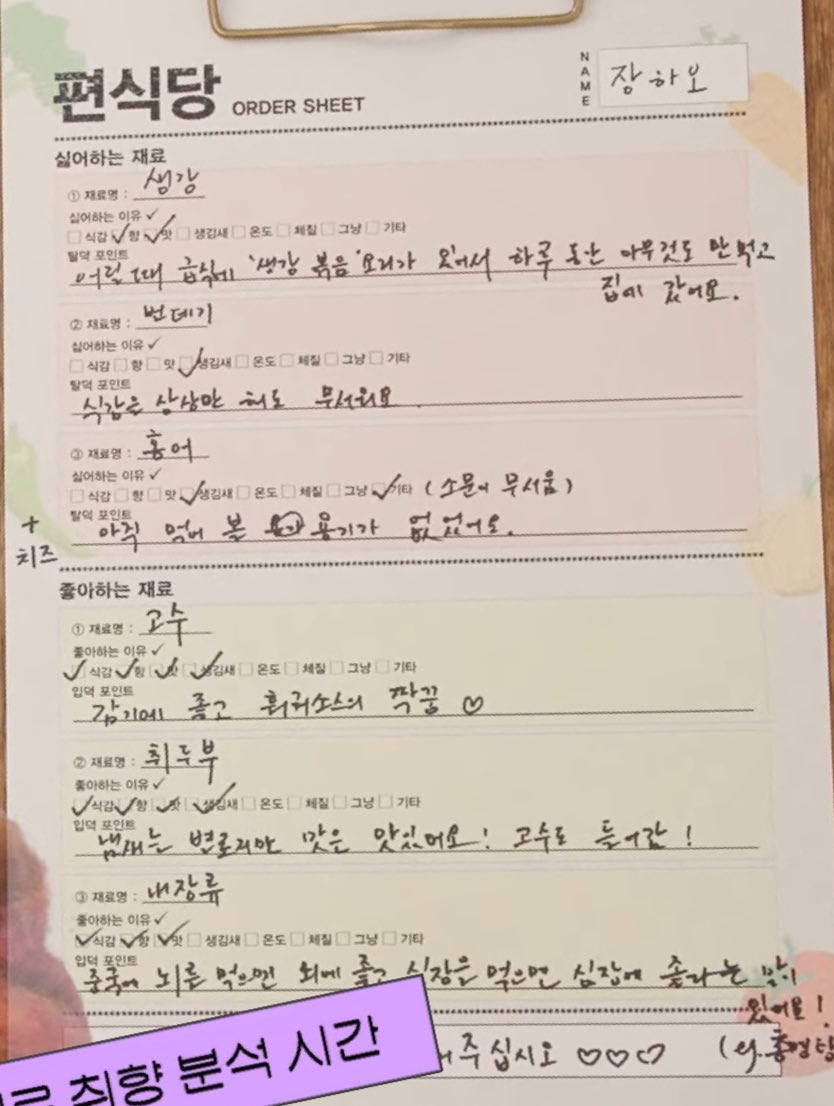 편식당 ORDER SHEET
NAME
장하오
싫어하는 재료
① 재료명 : 생강
싫어하는 이유 ✓
식감 향 맛 생김새 온도 체질 그냥 기타
탈덕 포인트
어릴 때 급식에 '생강 볶음' 요리가 있어서 하루 동안 아무것도 안 먹고
집에 갔어요.
② 재료명 : 번데기
싫어하는 이유 ✓
식감 향 맛 생김새 온도 체질 그냥 기타
탈덕 포인트
식감은 상상만 해도 무서워요.
③ 재료명 : 홍어
싫어하는 이유 ✓
식감 향 맛 생김새 온도 체질 그냥 기타 (소문이 무서움)
탈덕 포인트
아직 먹어 볼 용기가 없었어요.
+
치즈
좋아하는 재료
① 재료명 : 고수
좋아하는 이유 ✓
식감 향 맛 생김새 온도 체질 그냥 기타
입덕 포인트
감기에 좋고 훠궈소스의 짝꿍 ♡
② 재료명 : 취두부
좋아하는 이유 ✓
식감 향 맛 생김새 온도 체질 그냥 기타
입덕 포인트
냄새는 별로지만 맛은 맛있어요! 고수도 들어감!
③ 재료명 : 내장류
좋아하는 이유 ✓
식감 향 맛 생김새 온도 체질 그냥 기타
입덕 포인트
중국에 뇌를 먹으면 뇌에 좋고 심장을 먹으면 심장에 좋다는 말이
있어요!
주십시오 ♡♡♡
취향 분석 시간